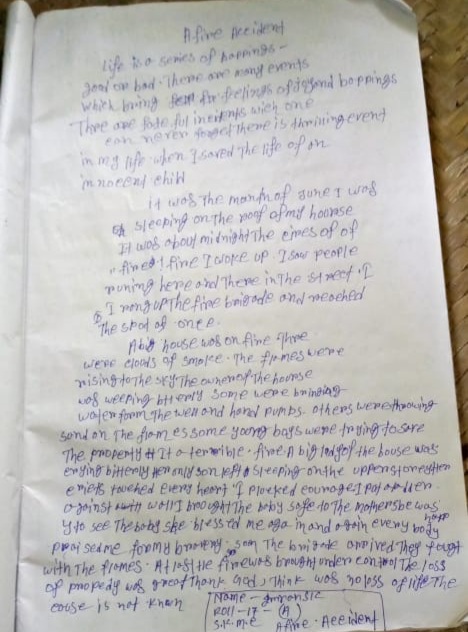 A fire Accident
Life is a series of happings -
good or bad. There are many events
which bring for feelings of joy and bappings
Three are fate ful incidents wich one
can never forget There is thrilling event
in my life when I saved The life of an
innocent child
it was the month of June I was
sleeping on the roof of my hourse
It was about midnight The cires of of
"fire! fire I woke up. I saw people
runing here and There in the street. I
I rang up the fire brigade and reached
The spot at once.
A big house was on fire Three
were clouds of smoke. The flames were
rising to the sky The owner of the hourse
was weeping bitterly some were brinding
water form The well and hand pumps. others were throwing
sand on The flames some young boys were trying to save
The property It a terrible. fire. A big lady of the house was
crying bitterly her only son left a sleeping on the upper storey
cries touched every heart I plocked courage I put a
against wall I brought The baby safe to The mother she was
to see The baby she blessed me aga in and again every body
praised me for my bravery. soon The briade arrived They fought
with The flames. At last the fire was brought under control The loss
of property was great Thank God, Think was no loss of life The
couse is not known
Name -
Roll - 17 - (A)
A fire. Accident